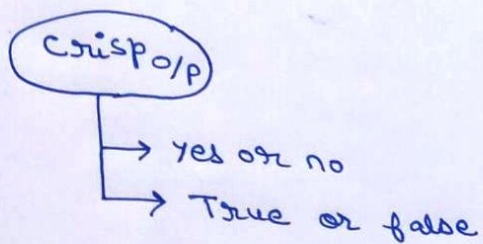 Crisp o/p
yes or no
True or false